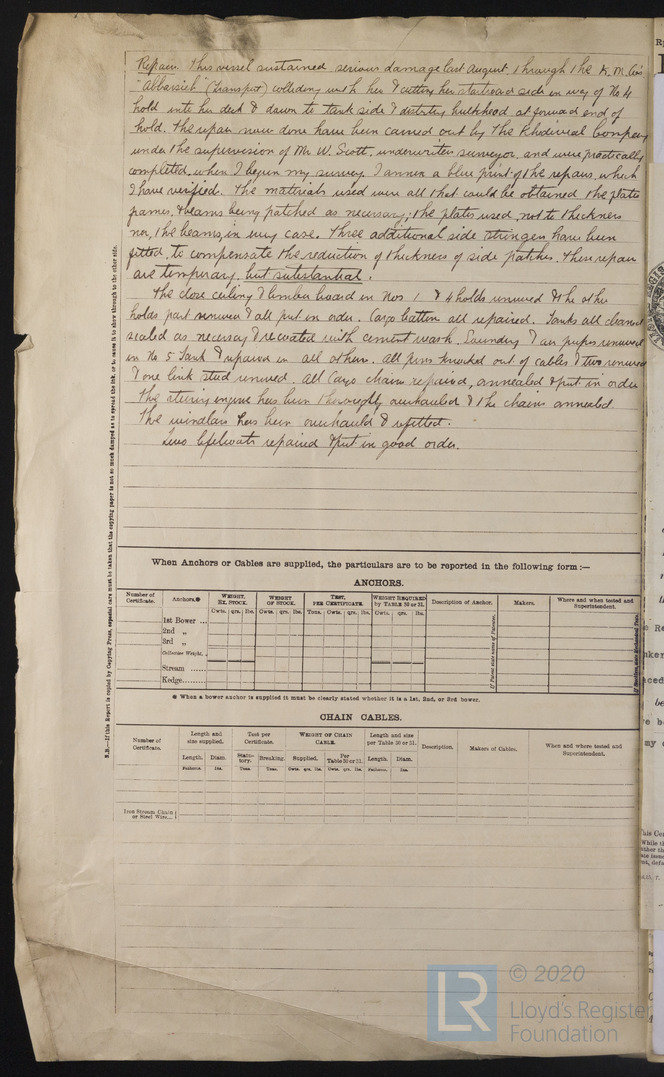 Repair. This vessel sustained serious damage last August, through the K. M. Co's
"Abbassieh" (Transport) colliding with her & cutting her starboard side in way of No 4
hold into her deck & down to tank side & distorting bulkhead at forward end of
hold. The repair now done have been carried out by the Khedivial Company
under the supervision of Mr W. Scott, underwriters surveyor, and were practically
completed, when I begun my survey. I annex a blue print of the repairs, which
I have verified. The materials used were all that could be obtained the plates
frames, & beams being patched as necessary; the plates used, not to thickness
nor, the beams, in every case. Three additional side stringers have been
fitted, to compensate the reduction of thickness of side patches. These repairs
are temporary, but substantial.
The close ceiling & limber board in Nos 1 & 4 holds renewed & the other
holds part renewed & all put in order. Cargo batten all repaired. Tanks all cleaned
scaled as necessary & recoated with cement wash. Sounding & air pipes renewed
in No 5 Tank & repaired in all others. All pins knocked out of cables & two renewed
& one link stud renewed. All Cargo chains repaired, annealed & put in order
The steering engine has been thoroughly overhauled & the chains annealed.
The windlass has been overhauled & refitted.
Two lifeboats repaired & put in good order.
N.B.—If this Report is copied by Copying Press, especial care must be taken that the copying paper is not so much damped as to spread the ink, or to cause it to show through to the other side.
When Anchors or Cables are supplied, the particulars are to be reported in the following form :—
ANCHORS.
Number of Certificate. Anchors.* WEIGHT, EX. STOCK. WEIGHT OF STOCK. TEST, PER CERTIFICATE. WEIGHT REQUIRED by TABLE 30 or 31. Description of Anchor. Makers. Where and when tested and Superintendent.
Cwts. qrs. lbs. Cwts. qrs. lbs. Tons. Cwts. qrs. lbs. Cwts. qrs. lbs.
1st Bower ...
2nd „
3rd „
Collective Weight.
Stream ......
Kedge.........
If Patent state name of Patentee.
* When a bower anchor is supplied it must be clearly stated whether it is a 1st, 2nd, or 3rd bower.
CHAIN CABLES.
Number of Certificate. Length and size supplied. Test per Certificate. WEIGHT OF CHAIN CABLE. Length and size per Table 30 or 31. Description. Makers of Cables. When and where tested and Superintendent.
Length. Diam. Statutory. Breaking. Supplied. Per Table 30 or 31. Length. Diam.
Fathoms. Ins. Tons. Tons. Cwts. qrs. lbs. Cwts. qrs. lbs. Fathoms. Ins.
Iron Stream Chain
or Steel Wire...
LR
© 2020
Lloyd's Register
Foundation